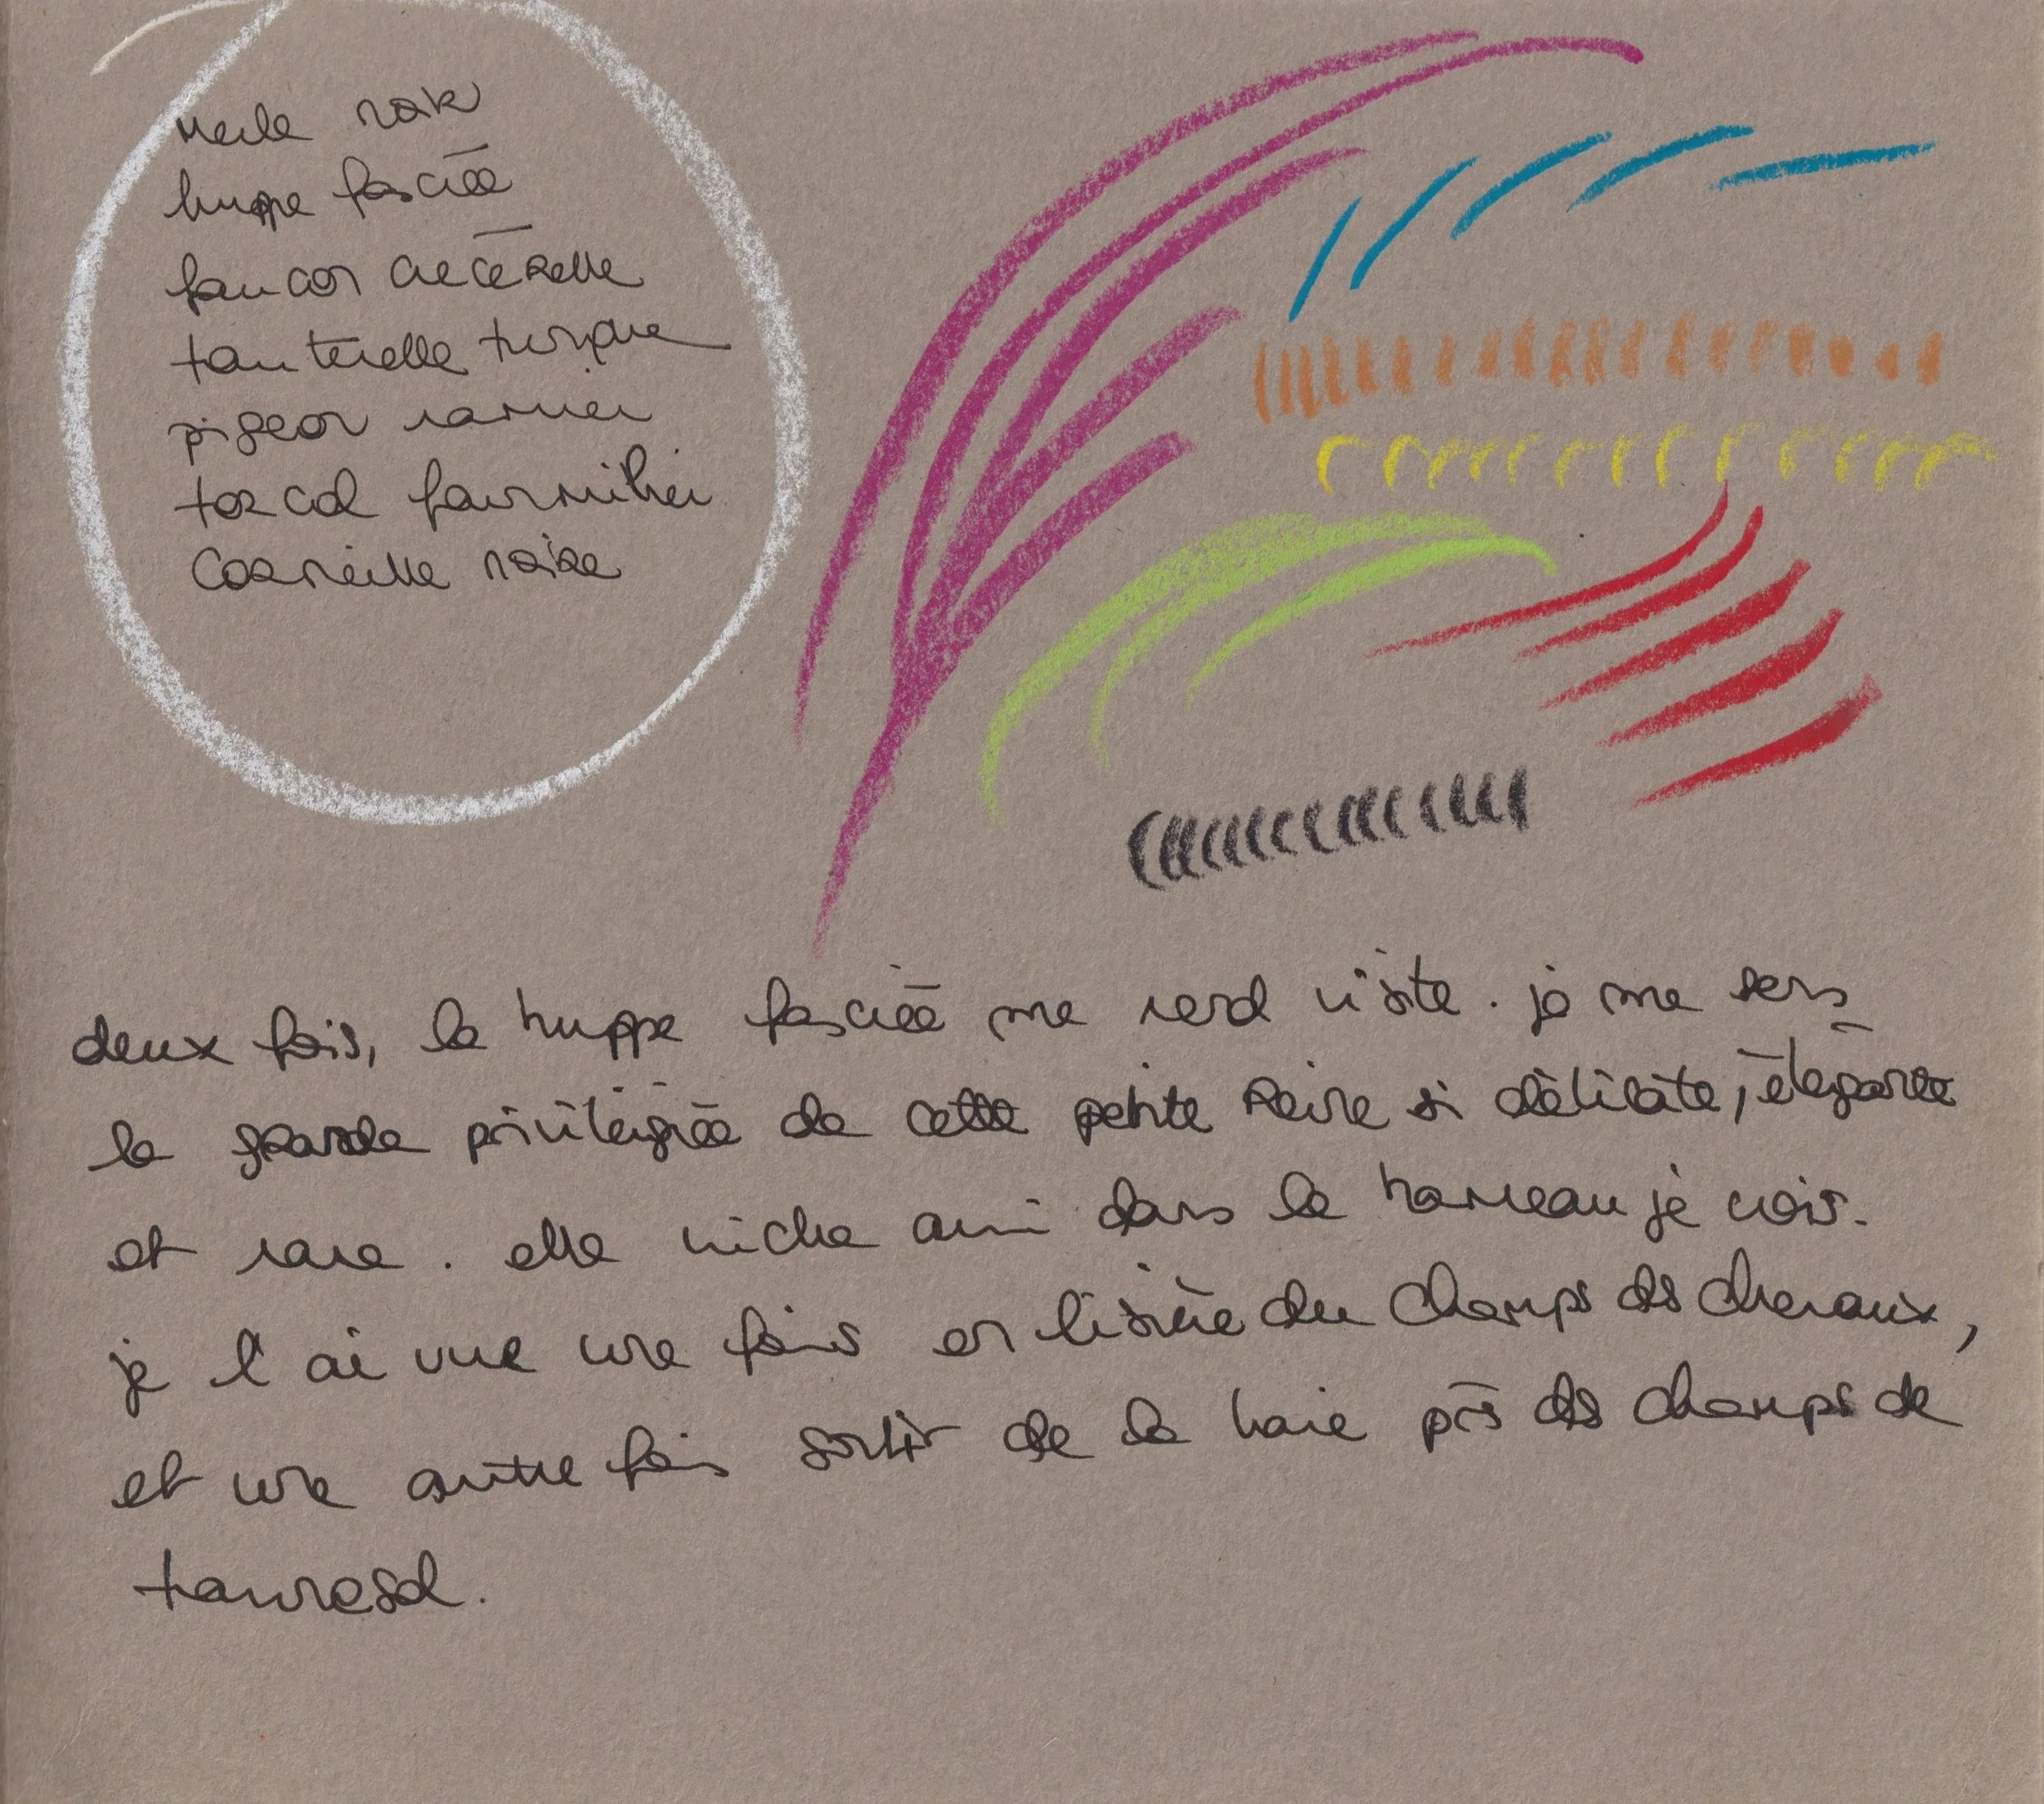 merle noir
huppe fasciée
faucon crécerelle
tourterelle turque
pigeon ramier
torcol fourmilier
corneille noire
deux fois, la huppe fasciée me rend visite. je me sens
la grande privilégiée de cette petite reine si délicate, élégante
et rare. elle niche ami dans le hameau je crois.
je l'ai vue une fois en lisière du champs des chevaux,
et une autre fois sortir de la haie près des champs de
tournesol.